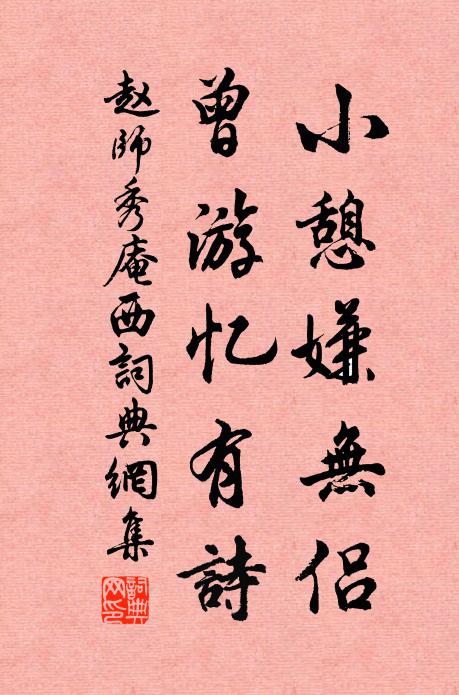 小憩嫌無侶
曾游忆有詩
赵師秀庵西詞典網集
詞典網印